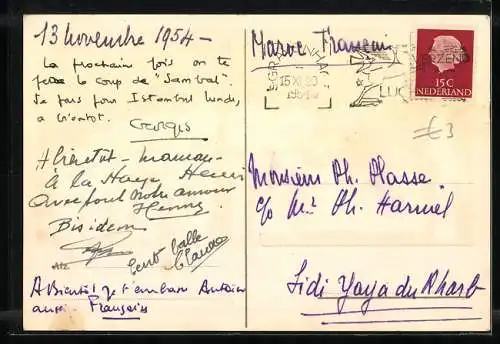 13 novembre 1954 -
La prochaine fois on te
fera le coup de "Sambal".
Je pars pour Istanbul lundi,
a bientot.
Georges
A bientôt - maman -
à La Haye Henri
avec tout notre amour
Henny
Bis idem
Claude
A Bientôt je t'embrasse Antoine
aussi. François
Maroc Français
'S-GRAVENHAGE
15 XI 20
1954
VERZEND
LUC
15 C
NEDERLAND
€3
Monsieur Ph. Plasse.
c/o Mr. Ph. Harmel
Sidi Yaya du Rharb